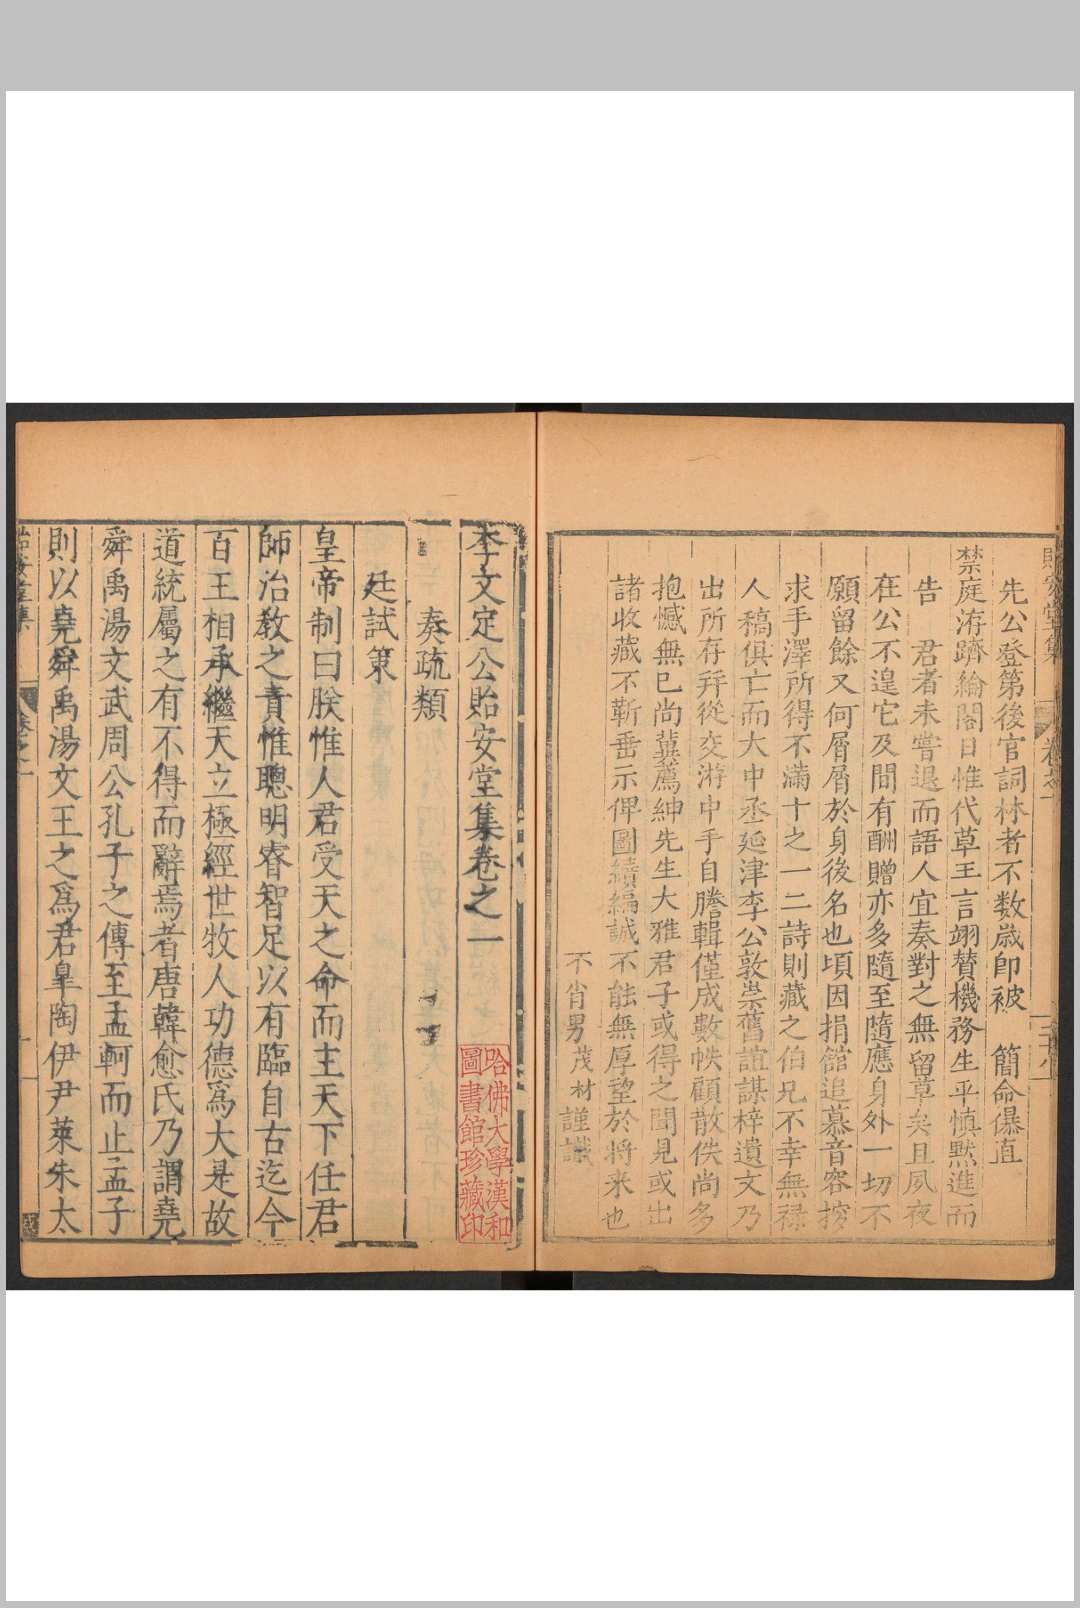 先公登第後官詞林者不数歲即被　簡命儤直
禁庭洊躋綸閣日惟代草王言翊贊機務生平慎黙進而
告　君者未嘗退而語人宜奏對之無留草矣且夙夜
在公不遑它及間有酬贈亦多隨至隨應身外一切不
願留餘又何屑屑於身後名也頃因捐舘追慕音容撿
求手澤所得不滿十之一二詩則藏之伯兄不幸無禄
人稿俱亡而大中丞延津李公敦崇舊誼謀梓遺文乃
出所存拜從交游中手自謄輯僅成數帙顧散佚尚多
抱憾無已尚冀薦紳先生大雅君子或得之聞見或出
諸收藏不靳垂示俾圖續編誠不能無厚望於將来也
不肖男茂材謹識
李文定公貽安堂集卷之一
哈佛大學漢和
圖書館珍藏印
奏疏類
廷試策
皇帝制曰朕惟人君受天之命而主天下任君
師治教之責惟聰明睿智足以有臨自古迄今
百王相承繼天立極經世牧人功德爲大是故
道統屬之有不得而辭焉者唐韓愈氏乃謂堯
舜禹湯文武周公孔子之傳至孟軻而止孟子
則以堯舜禹湯文王之爲君皐陶伊尹萊朱太